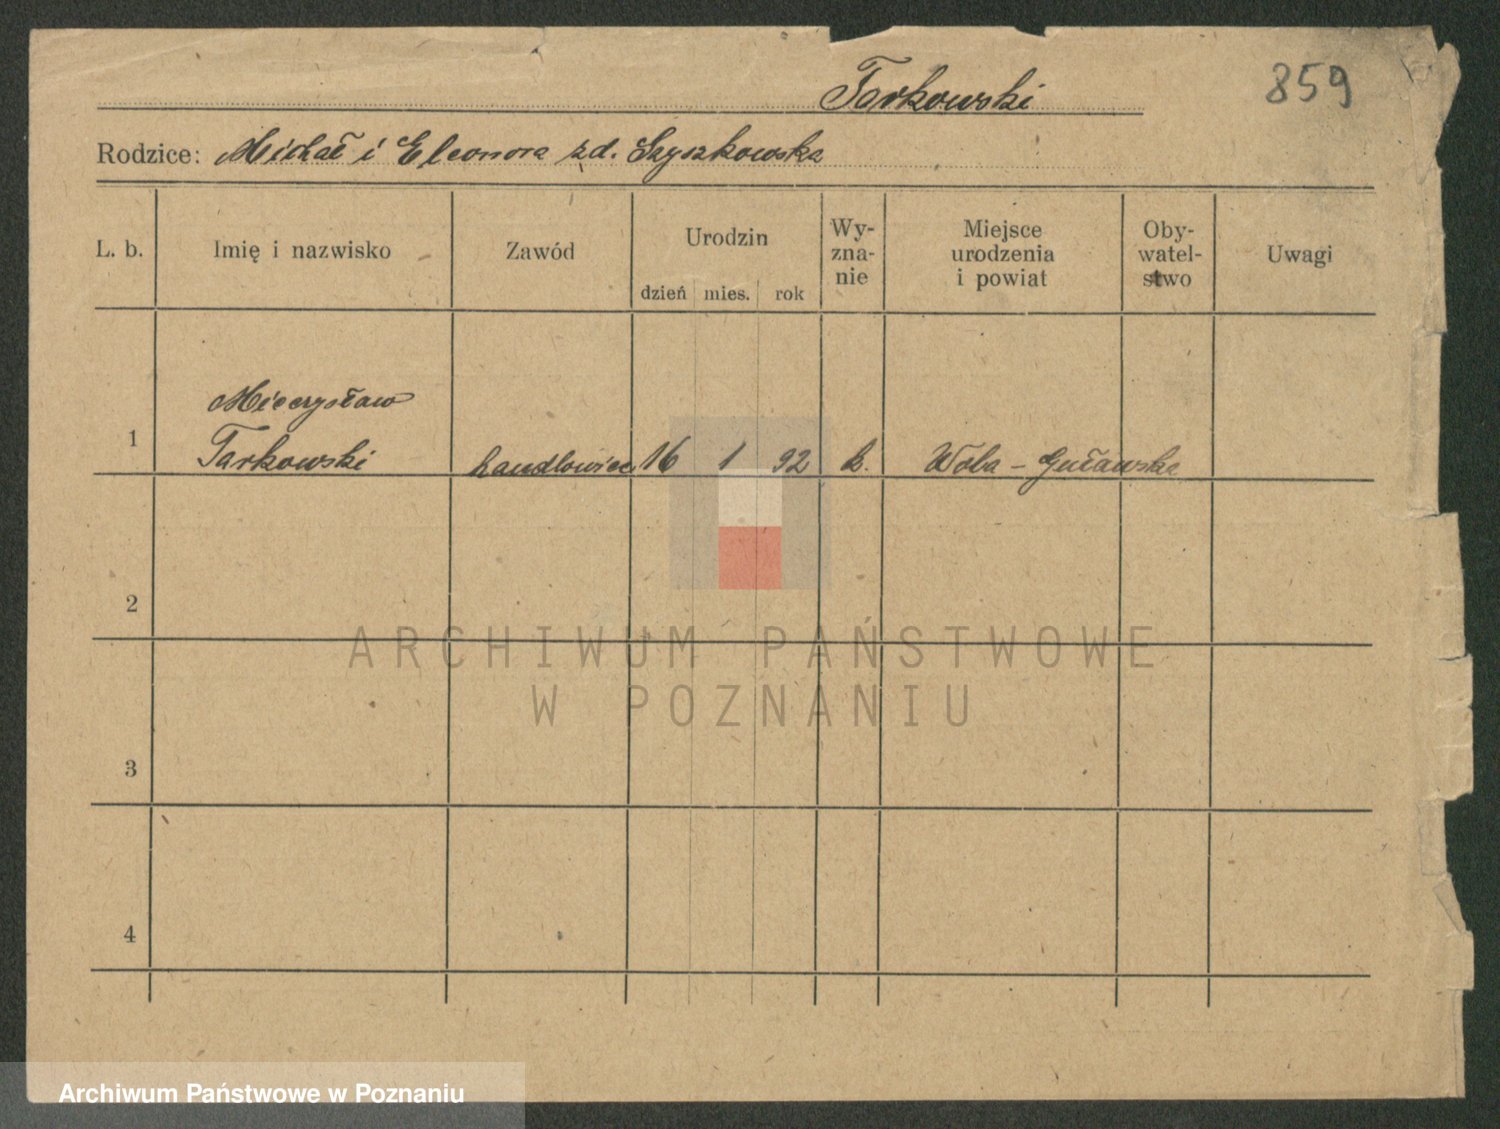 Tarkowski
859
Rodzice: Michał i Eleonora zd. Szyszkowska
L. b. Imię i nazwisko Zawód Urodzin Wy-zna-nie Miejsce urodzenia i powiat Oby-watel-stwo Uwagi
dzień mies. rok
Mieczysław
1 Tarkowski handlowiec 16 1 92 k. Wola - Gułowska
2
3
4
ARCHIWUM PAŃSTWOWE
W POZNANIU
Archiwum Państwowe w Poznaniu